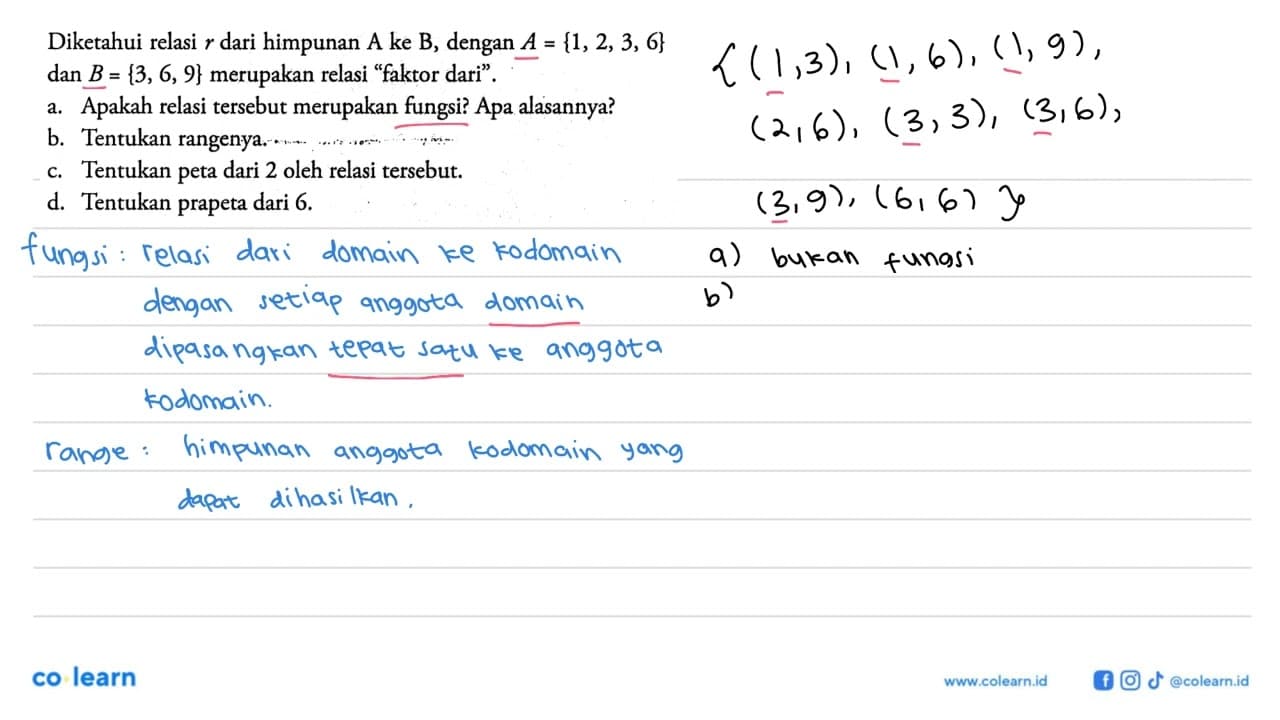 Diketahui relasi r dari himpunan A ke B, dengan A = {1, 2, 3, 6}
dan B = {3, 6, 9} merupakan relasi “faktor dari”.
a. Apakah relasi tersebut merupakan fungsi? Apa alasannya?
b. Tentukan rangenya.
c. Tentukan peta dari 2 oleh relasi tersebut.
d. Tentukan prapeta dari 6.
{(1,3), (1,6), (1,9),
(2,6), (3,3), (3,6),
(3,9), (6,6)}
fungsi : relasi dari domain ke kodomain
dengan setiap anggota domain
dipasangkan tepat satu ke anggota
kodomain.
range : himpunan anggota kodomain yang
dapat dihasilkan.
a) bukan fungsi
b)
co learn
www.colearn.id
@colearn.id